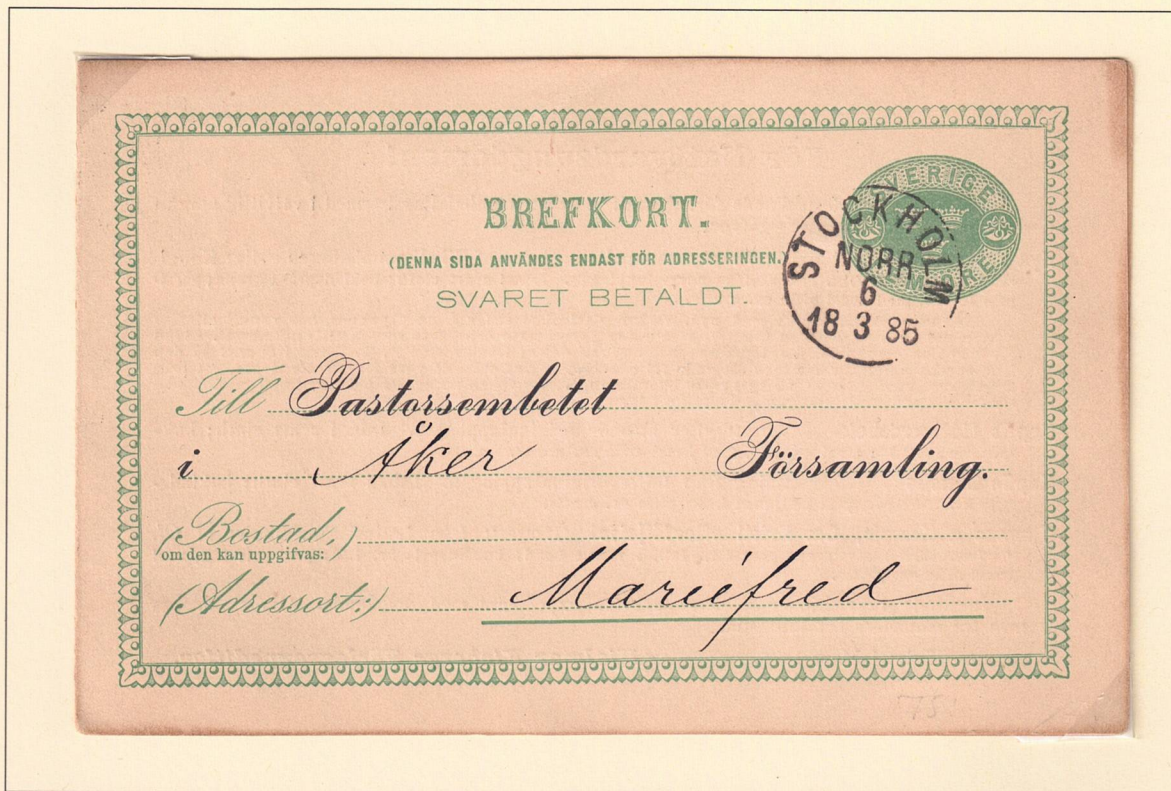 BREFKORT.
(DENNA SIDA ANVÄNDES ENDAST FÖR ADRESSERINGEN.)
SVARET BETALDT.
SVERIGE
STOCKHOLM
NORR
6
18 3 85
Till Pastorsembetet
i Åker Församling.
(Bostad,)
om den kan uppgifvas:
(Adressort:) Mariefred
75